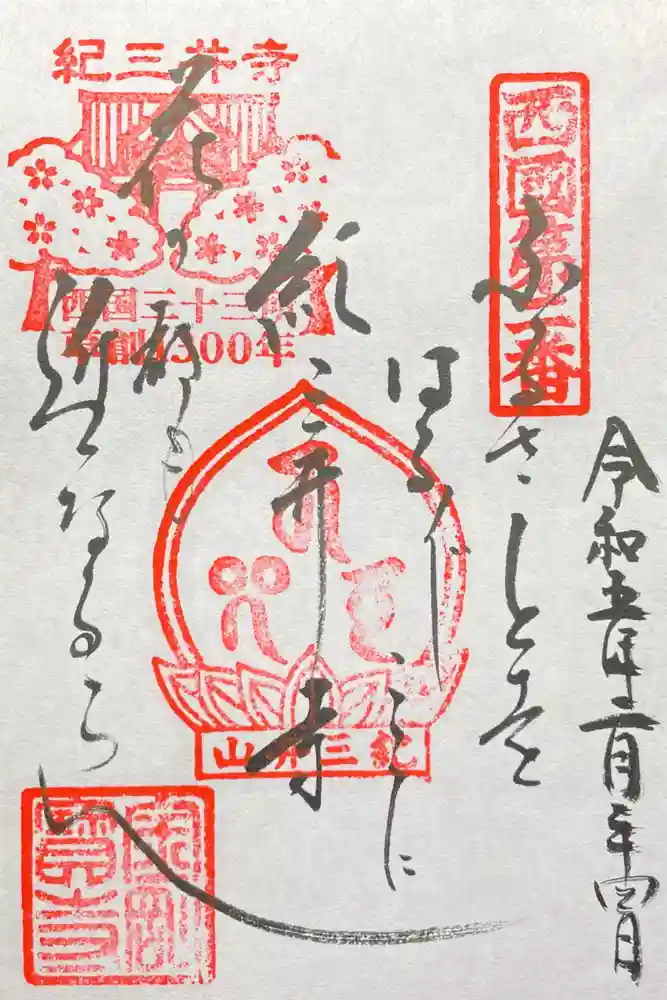 令和五年二月二十四日
西國第二番
ふるさとを
はる〲こゝに
紀三井寺
花の都も
近くなるらん
紀三井寺
西国三十三所
草創1300年
紀三井山
金剛寶寺